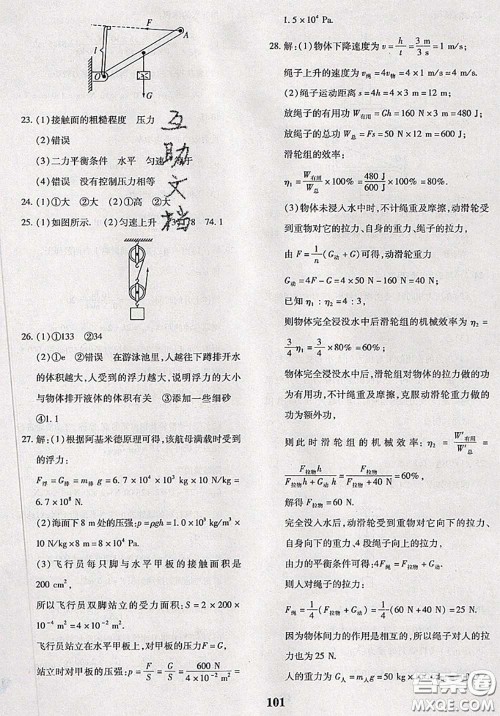 F
A
l
O
G
23. (1)接触面的粗糙程度 压力
(2)错误
(3)二力平衡条件 水平 匀速 等于
(4)错误 没有控制压力相等
24. (1)①大 ②大 (2)①高 ②大
25. (1)如图所示. (2)匀速上升 78 74.1
26. (1)①133 ②34
(2)①e ②错误 在游泳池里,人越往下蹲排开水
的体积越大,人受到的浮力越大,说明浮力的大小
与物体排开液体的体积有关 ③添加一些细砂
④1.1
27. 解:(1)根据阿基米德原理可得,该航母满载时受到
的浮力:
F浮=G排=m排g=6.7×10⁴×10³ kg×10 N/kg=
6.7×10⁸ N
(2)海面下 8 m 处的压强:p=ρgh=1.0×10³ kg/m³×10
N/kg×8 m=8×10⁴ Pa
(3)飞行员每只脚与水平甲板的接触面积是
200 cm²,
所以飞行员双脚站立的受力面积:S=2×200×
10⁻⁴ m²=4×10⁻² m²,
飞行员站立在水平甲板上,对甲板的压力F=G,
站立时对甲板的压强:p=F/S=G/S=600 N/4×10⁻² m²=
1.5×10⁴ Pa.
28. 解:(1)物体下降速度为 v=h/t=3 m/3 s=1 m/s;
绳子上升的速度为 v绳=4v物=4×1 m/s=4 m/s.
(2)绳子运动距离 s=4h=4×3 m=12 m;
放绳子的有用功 W有用=Gh=160 N×3 m=480 J;
放绳子的总功 W总=Fs=50 N×12 m=600 J;
滑轮组的效率:
η₁=W有用/W总×100%=480 J/600 J×100%=80%;
(3)物体未浸入水中时,不计绳重及摩擦,动滑轮受
到重物对它的拉力、自身的重力、绳子的拉力,
由 F=1/n(G动+F物拉)可得,动滑轮重
G动=4F-G=4×50 N-160 N=40 N,
已知 η₁:η₂=4:3,
则物体完全浸没水中后滑轮组的机械效率为:
3/4 η₁=3/4×80%=60%;
物体完全浸没水中后,克服物体对动滑轮拉力做的
功为有用功,不计绳重及摩擦,克服动滑轮重力做额
外功,
则此时滑轮组的机械效率:η₂=W'有用/W'总=
F拉物h/F拉物h+G动h=F拉物/F拉物+40 N=60%,
完全没入水中后,动滑轮受到重物对它向下的拉
力、自身向下的重力、4 段绳子向上的拉力,
由力的平衡条件可得:4F绳=F拉物+G动,
则人对绳子的拉力:
F绳=1/4(F拉物+G动)=1/4×(60 N+40 N)=25 N,
因为物体间力的作用是相互的,所以绳子对人的拉
力也为 25 N,
人的重力为 G人=m人g=50 kg×
互
助
文
档
101
答案圈
MXQE.COM